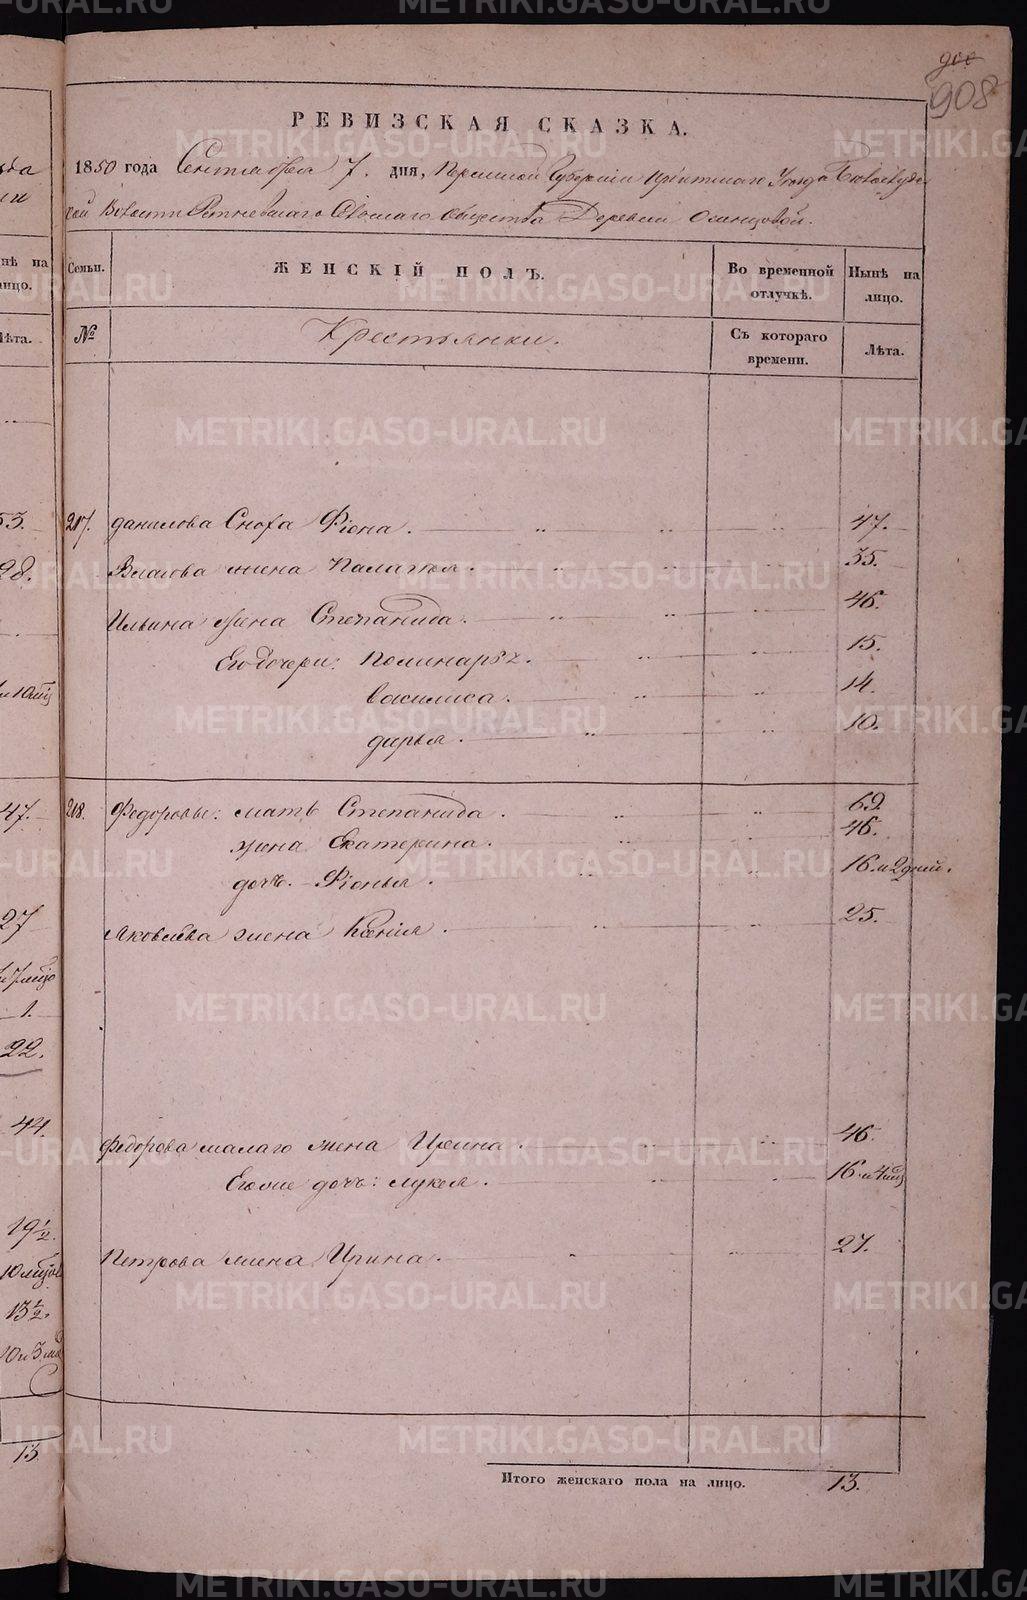 900
908
РЕВИЗСКАЯ СКАЗКА.
1850 года Сентября 7. дня, Пермской Губернiи Ирбитскаго Уезда Белослудс-
кой Волости Ретневскаго Сельскаго Общества Деревни Осинцовой.
Семьи. ЖЕНСКІЙ ПОЛЪ. Во временной отлучкѣ. Нынѣ на лицо.
№ Крестьянки. Съ котораго времени. Лѣта.
217. данилова Сноха Фiона. 47.
Власова жена Палагья. 35.
Ильина жена Степанида. 46.
Его дочери: Полинарья. 15.
василиса. 14.
дарья. 10.
218. Федоровы: мать Степанида. 69.
жена Екатерина. 46.
дочь. Фiонья. 16 и 2 дней.
Яковлева жена Ксенiя. 25.
Федорова малаго жена Ирина. 46.
Его же дочь: лукея. 16 и 4 мц
Петрова жена Ирина. 27.
Итого женскаго пола на лицо. 13.
нѣ на
лицо.
Лѣта.
53.
28.
и 10 мц
47.
27
и 7 мцо
1.
22.
44.
19½.
10 мцов
13½.
10 и 3 мц
13
METRIKI.GASO-URAL.RU